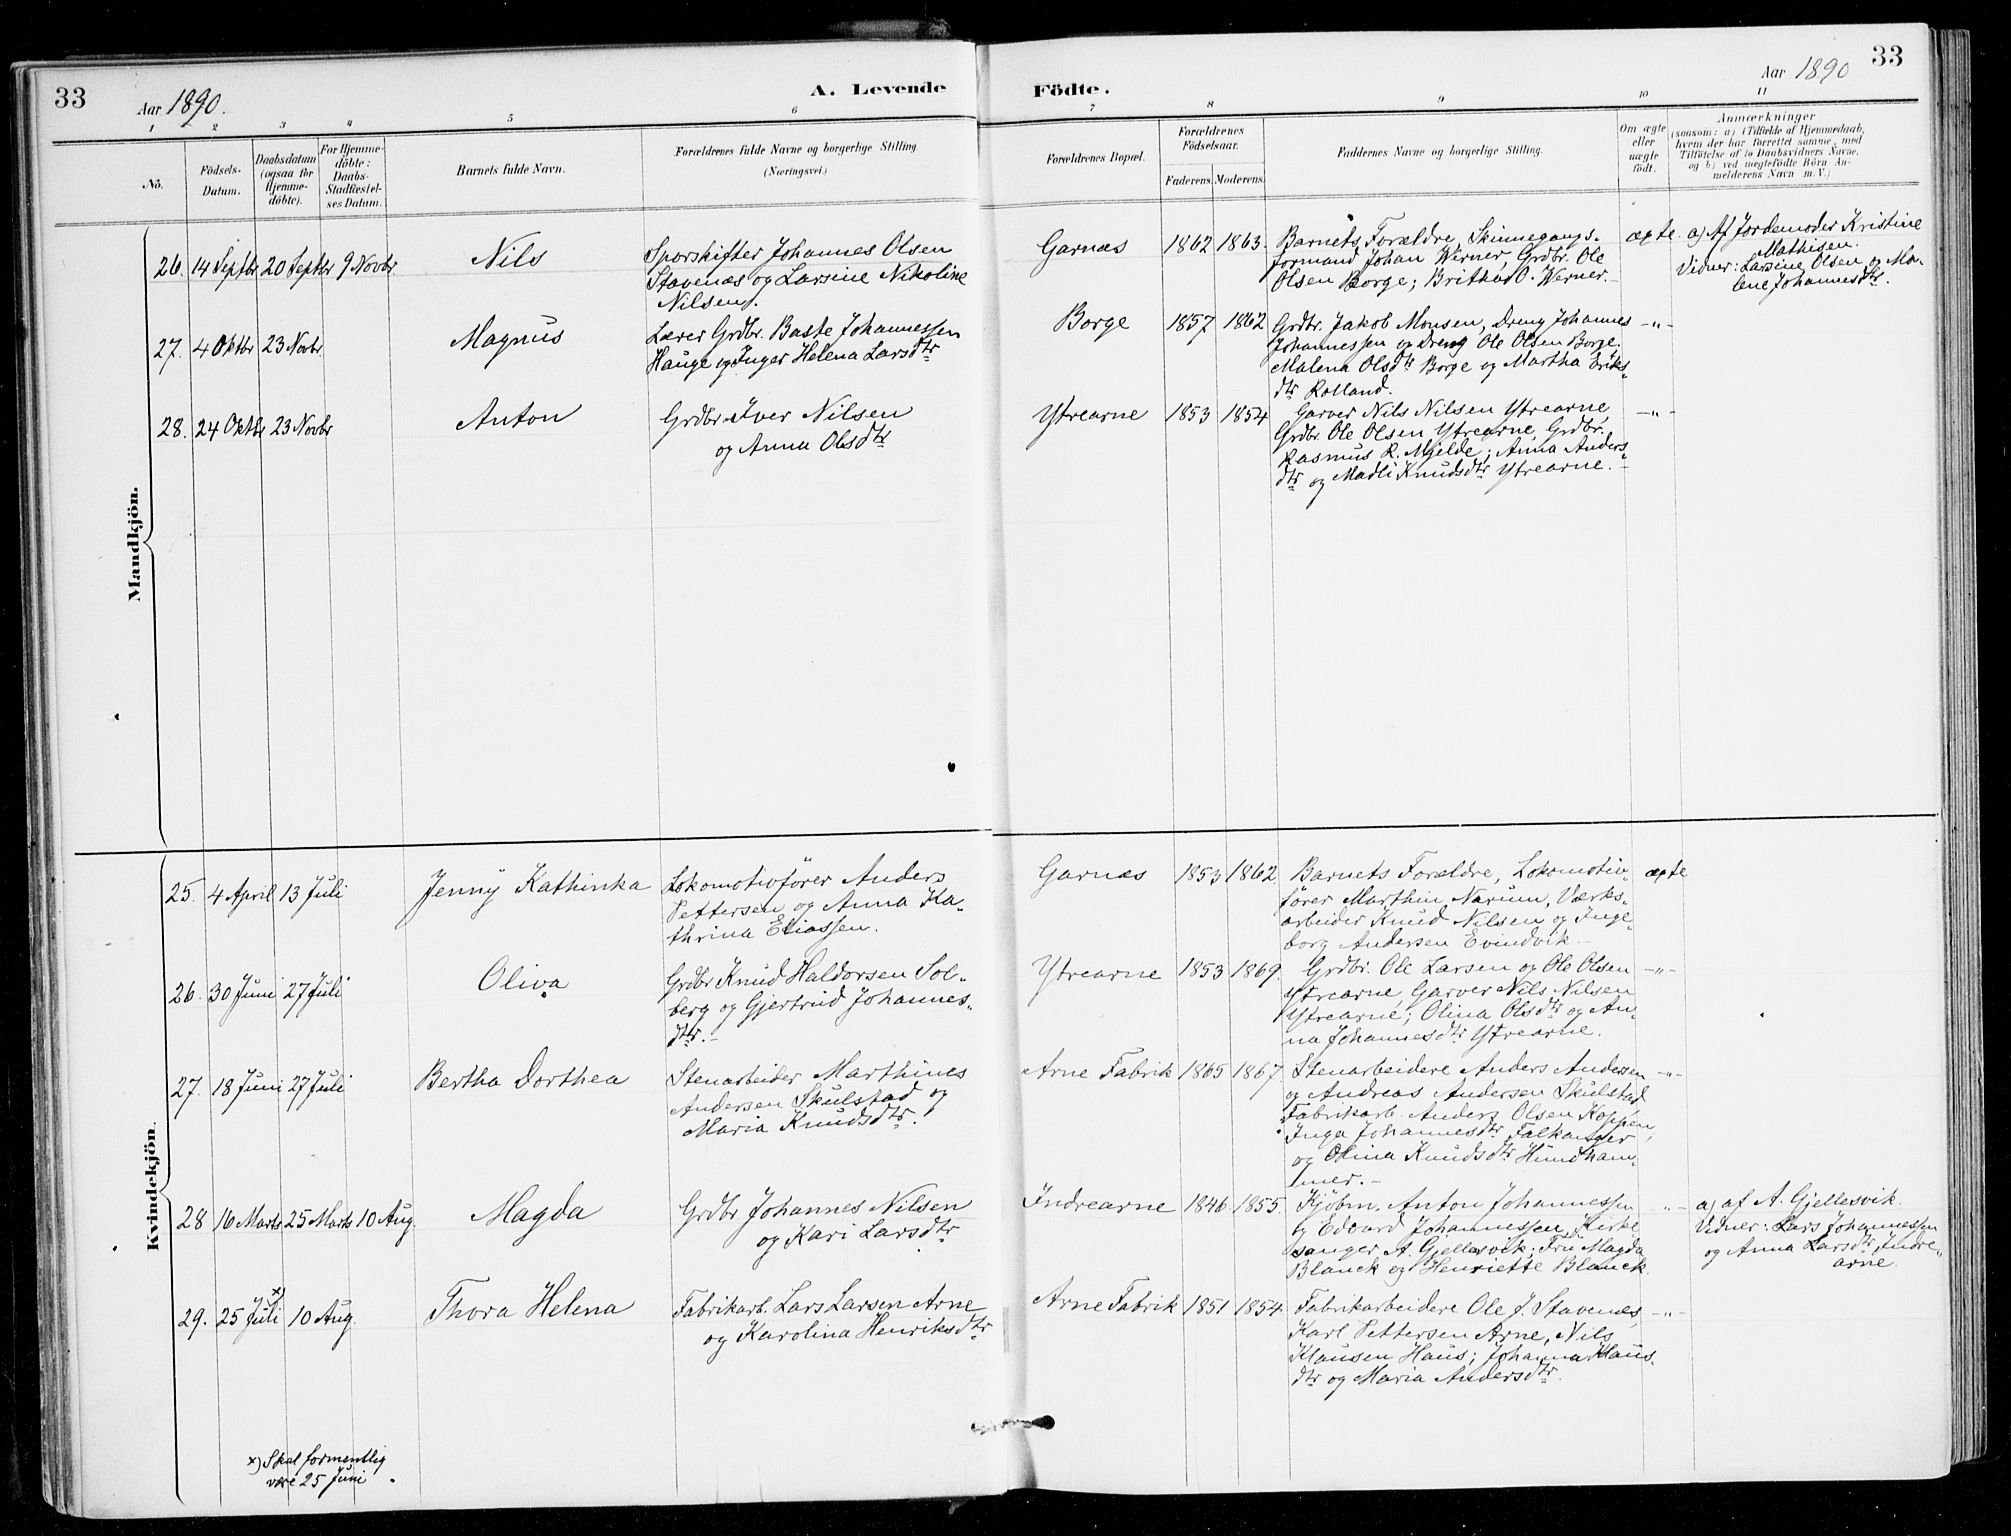 33
Aar 1890.
A. Levende
Födte.
Aar 1890
33
1 2 3 4 5 6 7 8 9 10 11
No.
Födsels-
Datum.
Daabsdatum
(ogsaa for
Hjemme-
döbte).
For Hjemme-
döbte:
Daabs-
Stadfæstel-
ses Datum.
Barnets fulde Navn.
Forældrenes fulde Navne og borgerlige Stilling.
(Næringsvei.)
Forældrenes Bopæl.
Forældrenes
Födselsaar.
Faderens. Moderens.
Faddernes Navne og borgerlige Stilling.
Om ægte
eller
uægte
födt.
Anmærkninger
(saasom: a) i Tilfælde af Hjemmedaab,
hvem der har forrettet samme, med
Tilföielse af to Daabsvidners Navne,
og b) ved uægtefödte Börn An-
melderens Navn m. V.)
Mandkjön.
26. 14 Septbr 20 Septbr 9 Novbr
Nils
Sporskifter Johannes Olsen
Stavenæs og Larsine Nikoline
Nilsen.
Garnæs 1862 1863.
Barnets Forældre, Skinnegangs-
formand Johan Werner, Grdbr. Ole
Olsen Borge; Britha O. Werner.
ægte.
a) Af Jordemoder Kristine
Mathisen.
Vidner: Larsine Olsen og Ma-
lene Johannesdtr.
27. 4 Oktbr 23 Novbr.
Magnus
Lærer Grdbr. Baste Johannessen
Hauge og Inger Helena Larsdtr
Borge 1857 1862
Grdbr. Jakob Monsen, Dreng Johannes
Johannessen og Dreng Ole Olsen Borge.
Malena Olsdtr Borge og Martha Eriks-
dtr Rolland.
-"-
28. 24 Oktbr 23 Novbr
Anton
Grdbr. Iver Nilsen
og Anna Olsdtr
Ytrearne 1853 1854
Garver Nils Nilsen Ytrearne,
Grdbr. Ole Olsen Ytrearne, Grdbr.
Rasmus R. Mjelde; Anna Anders-
dtr og Madli Knudsdtr Ytrearne.
-"-
Kvindekjön.
25. 4 April 13 Juli
Jenny Kathinka
Lokomotivfører Anders
Pettersen og Anna Ka-
thrina Eliassen.
Garnæs 1853 1862
Barnets Forældre, Lokomotiv-
fører Marthin Narum, Værks-
arbeider Knud Nilsen og Inge-
borg Andersen Evindvik.
ægte
26. 30 Juni 27 Juli
Oliva
Grdbr Knud Haldorsen Sol-
berg og Gjertrud Johannes-
dtr.
Ytrearne 1853 1869.
Grdbr. Ole Larsen og Ole Olsen
Ytrearne, Garver Nils Nilsen
Ytrearne; Olina Olsdtr og An-
na Johannesdtr Ytrearne.
-"-
27. 18 Juni 27 Juli
Bertha Dorthea
Stenarbeider Marthines
Andersen Skulstad og
Maria Knudsdtr.
Arne Fabrik 1865 1867
Stenarbeidere Anders Andersen
og Andreas Andersen Skulstad
Fabrikarb. Anders Olsen Koppen,
Inga Johannesdtr Falkanger
og Olina Knudsdtr Hundham-
mer.
-"-
28 16 Marts 25 Marts 10 Aug.
Magda
Grdbr. Johannes Nilsen
og Kari Larsdtr
Indrearne 1846 1855.
Kjøbm. Anton Johannessen
og Edvard Johannessen, Kirke-
sanger A. Gjellesvik; Fru Magda
Blanck og Henriette Blanck.
-"-
a) af A. Gjellesvik.
Vidner: Lars Johannessen
og Anna Larsdtr, Indre-
arne.
29. 25 Juli x) 10 Aug.
Thora Helena
Fabrikarb. Lars Larsen Arne
og Karolina Henriksdtr
Arne Fabrik 1851 1854.
Fabrikarbeidere Ole J. Stavenes,
Karl Pettersen Arne, Nils
Klausen Haus; Johanna Klaus-
dtr og Maria Andersdtr.
-"-
x) Skal formentlig
være 25 Juni